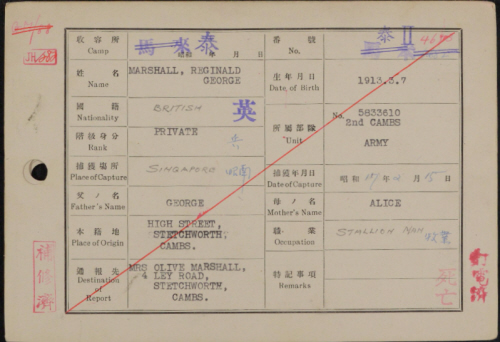 收容所 Camp 馬來 泰 年 月 日
番號 No. 泰 II
姓名 Name MARSHALL, REGINALD
GEORGE
生年月日 Date of Birth 1913.3.7
國籍 Nationality BRITISH 英
階級身分 Rank PRIVATE 兵
所屬部隊 Unit No. 5833610
2nd CAMBS
ARMY
捕獲場所 Place of Capture SINGAPORE
捕獲年月日 Date of Capture 昭和 17 年 2 月 15 日
父ノ名 Father's Name GEORGE
母ノ名 Mother's Name ALICE
本籍地 Place of Origin HIGH STREET,
STETCHWORTH,
CAMBS.
職業 Occupation STALLION MAN
通報先 Destination of Report MRS OLIVE MARSHALL,
4 LEY ROAD,
STETCHWORTH,
CAMBS.
特記事項 Remarks 死亡
補修濟
打電済